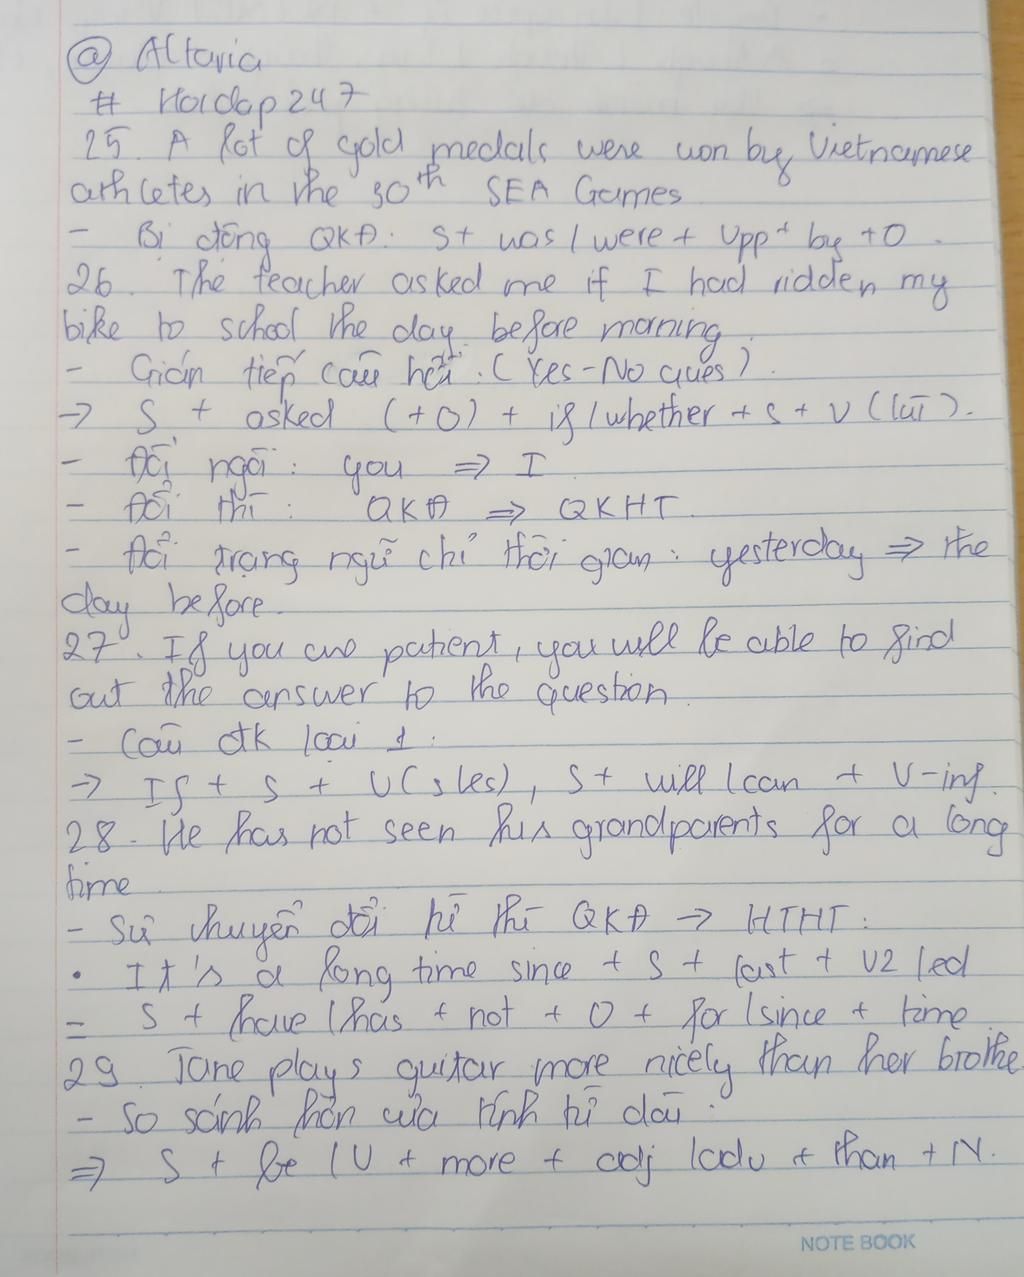 @ Altaria
# Hoidap247
25. A lot of gold medals were won by Vietnamese
athletes in the 30th SEA Games
- Bị động QKĐ: S + was / were + Vpp + by + O.
26. The teacher asked me if I had ridden my
bike to school the day before morning.
- Gián tiếp câu hỏi. (Yes-No ques).
→ S + asked (+O) + if / whether + S + V (lùi).
- Đổi ngôi: you => I
- Đổi thì: QKĐ => QKHT
- Đổi trạng ngữ chỉ thời gian: yesterday => the
day before.
27. If you are patient, you will be able to find
out the answer to the question
- Câu đk loại 1:
→ If + S + V(s/es), S + will / can + V-inf.
28. He has not seen his grandparents for a long
time
- Sự chuyển đổi từ thì QKĐ → HTHT:
• It's a long time since + S + last + V2/ed
= S + have / has + not + O + for / since + time
29. Jane plays guitar more nicely than her brothe
- So sánh hơn của tính từ dài:
=> S + be / V + more + adj / adv + than + N.
NOTE BOOK